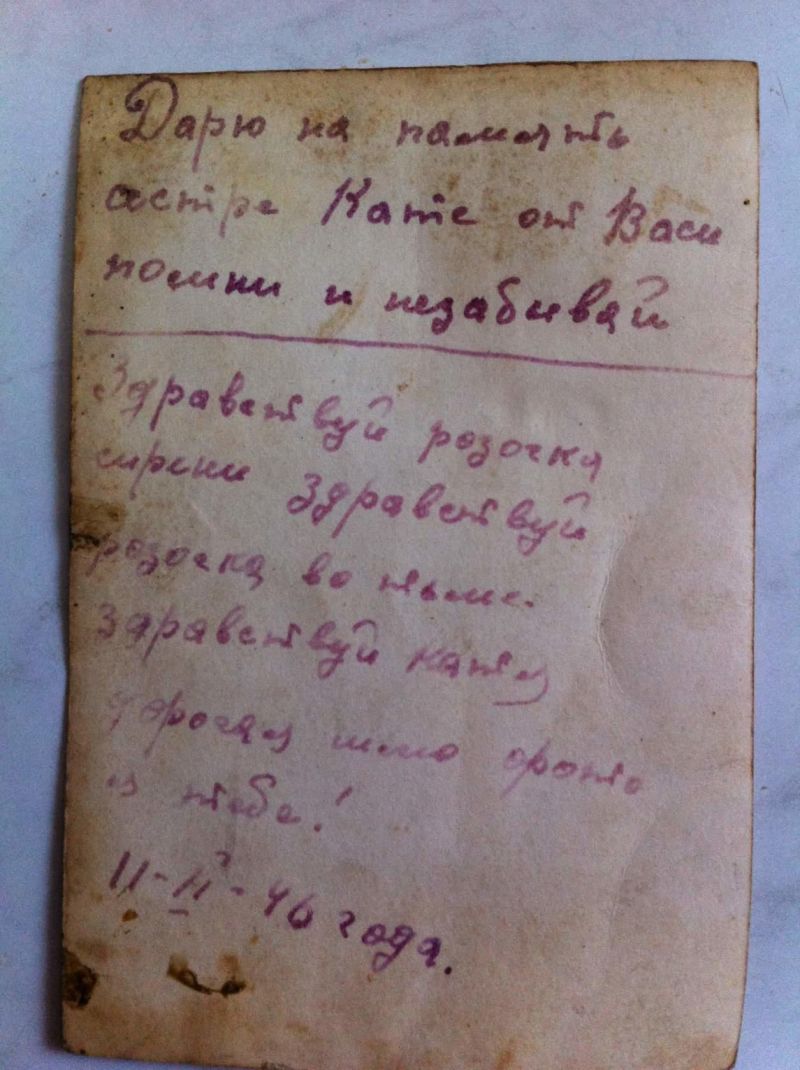 Дарю на память
сестре Кате от Васи
помни и незабивай
Здравствуй розочка
сирени Здравствуй
розочка во тьме.
Здравствуй катя
дорогая шлю фото
я тебе!
11-II-46 года.